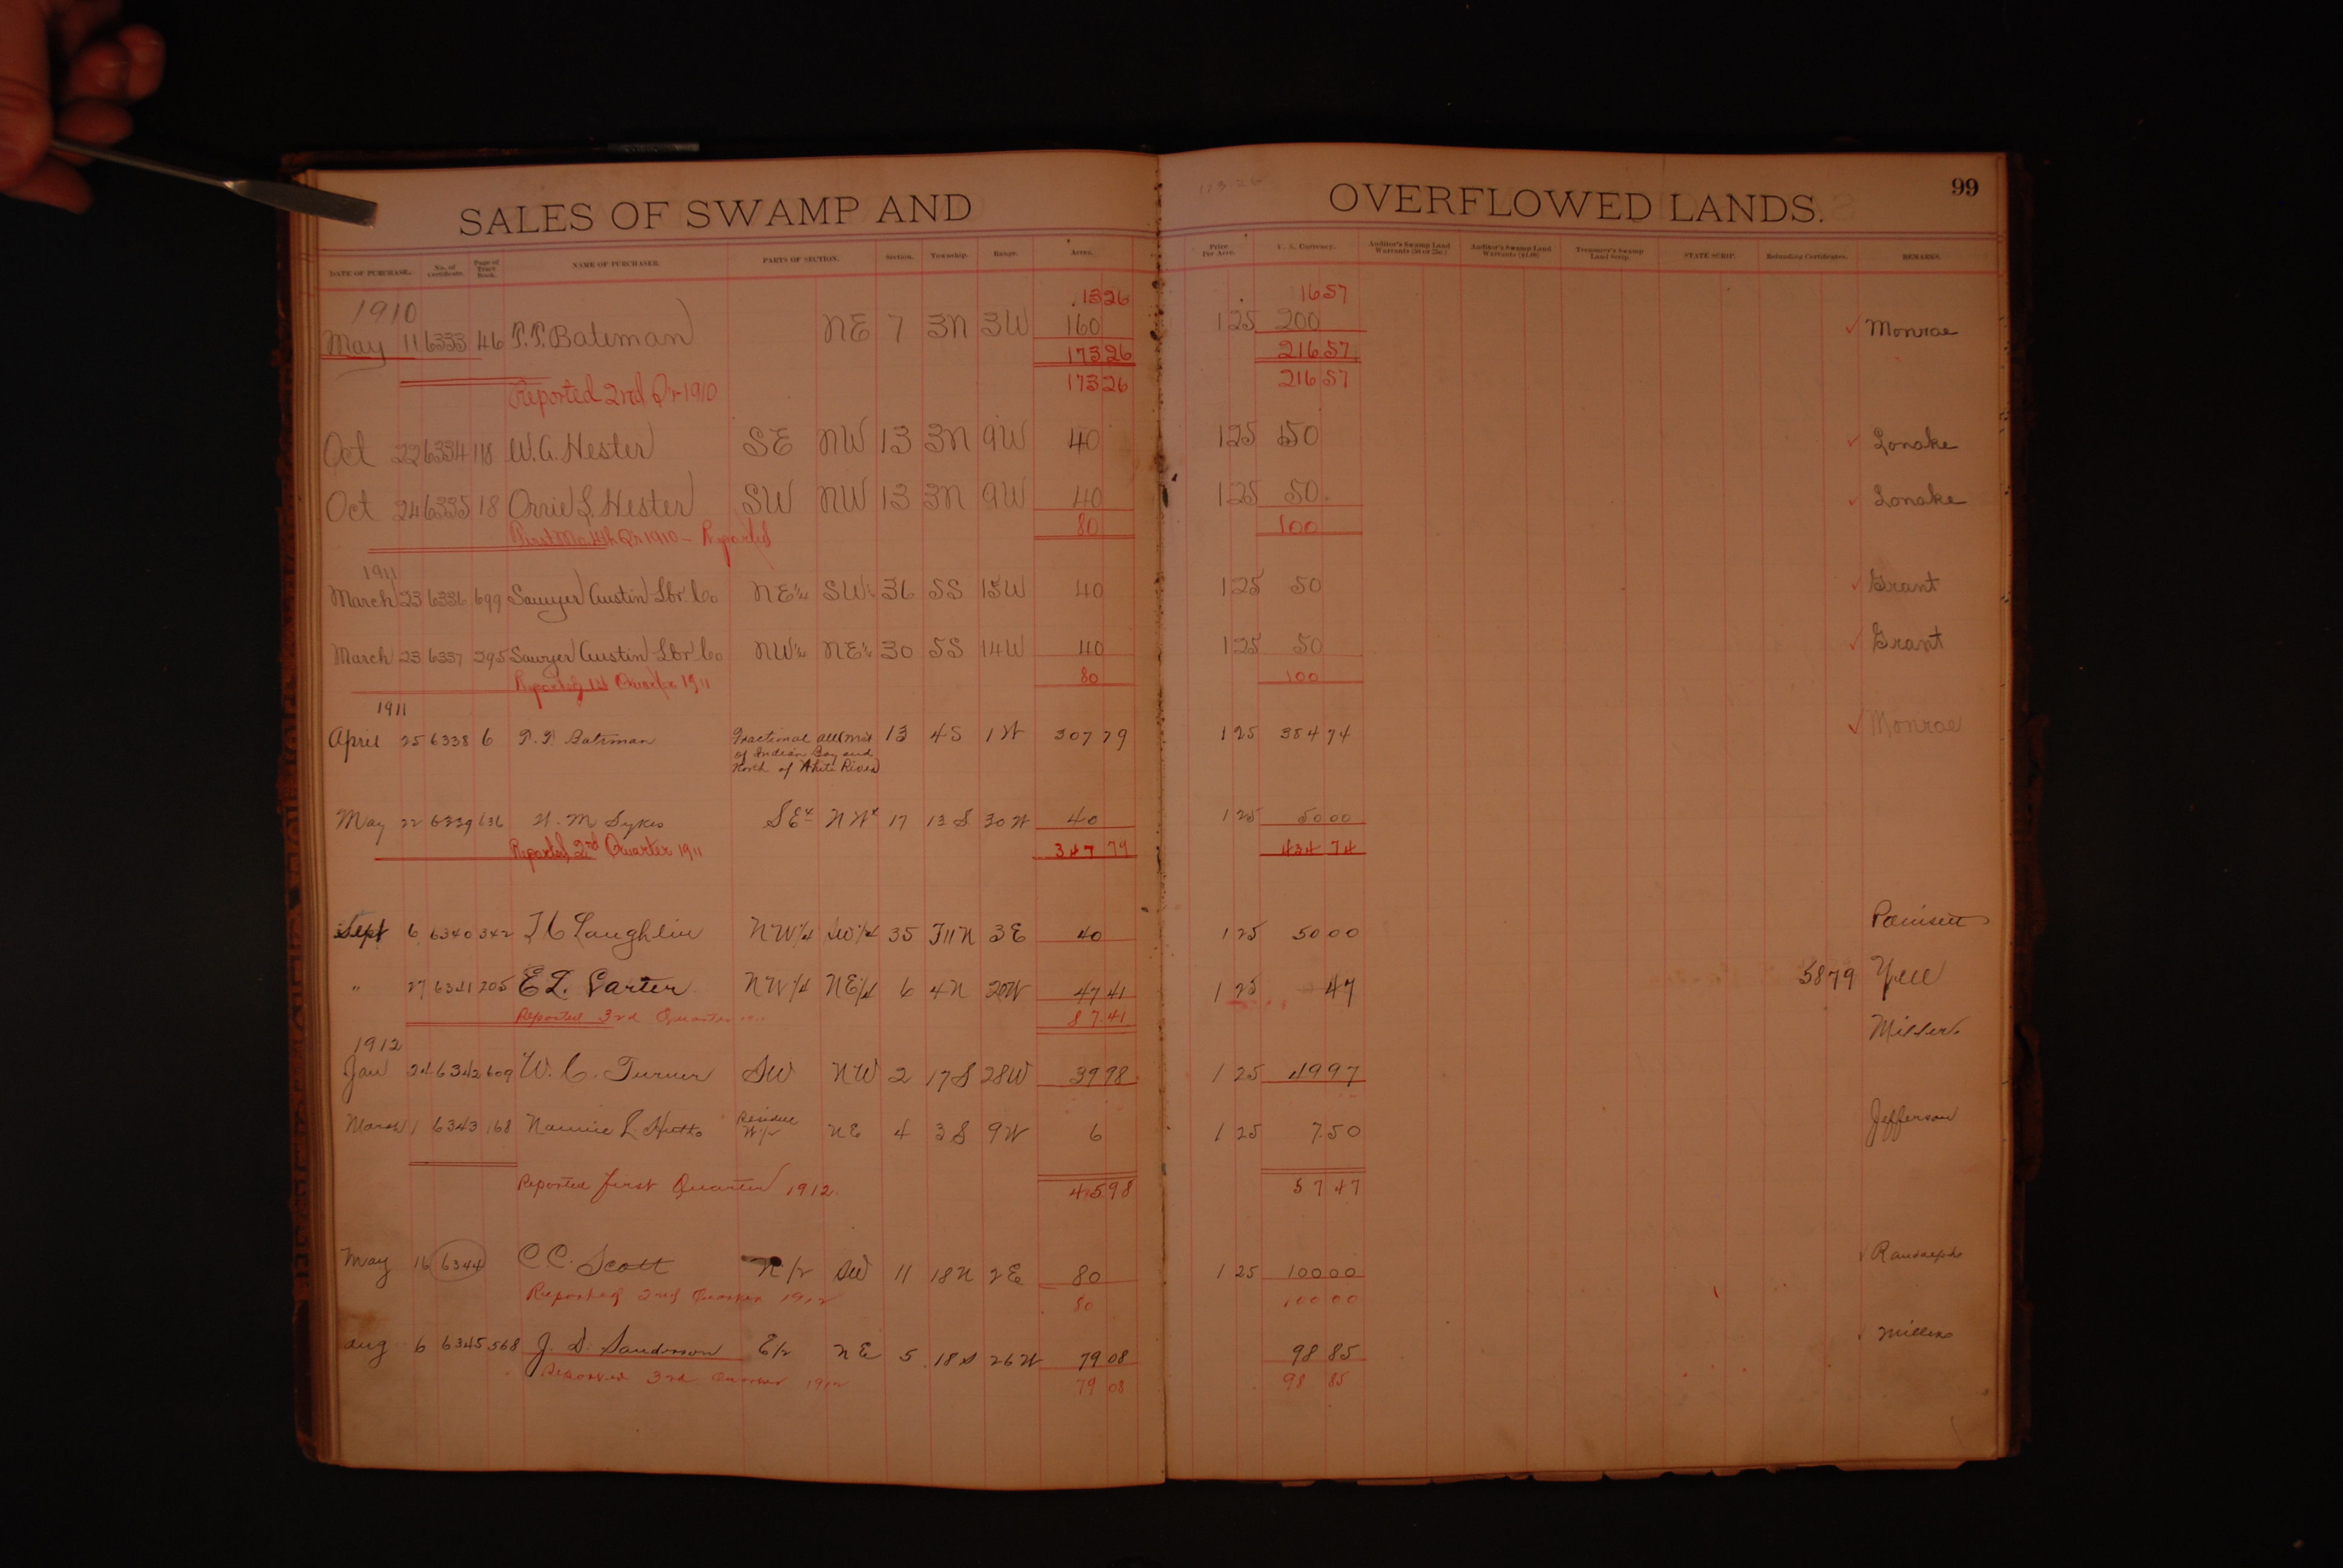 SALES OF SWAMP AND OVERFLOWED LANDS. 99
DATE OF PURCHASE. No. of Certificate. Page of Tract Book. NAME OF PURCHASER. PARTS OF SECTION. Section. Township. Range. Acres. Price Per Acre. U. S. Currency. Auditor's Swamp Land Warrants (50 or 75c.) Auditor's Swamp Land Warrants ($1.00) Treasurer's Swamp Land Scrip. STATE SCRIP. Refunding Certificates. REMARKS.
1326 1657
1910
May 11 6333 46 T.T. Bateman NE 7 3N 3W 160 1 25 200 ✓ Monroe
173 26 216 57
Reported 2nd Qr 1910 173 26 216 57
Oct 22 6334 118 W.A. Hester SE NW 13 3N 9W 40 1 25 50 ✓ Lonoke
Oct 24 6335 18 Orrie L. Hester SW NW 13 3N 9W 40 1 25 50 ✓ Lonoke
1910 - Reported 80 100
1911
March 23 6336 699 Sawyer Austin Lbr. Co NE¼ SW¼ 36 5S 15W 40 1 25 50 ✓ Grant
March 23 6337 295 Sawyer Austin Lbr Co NW¼ NE¼ 30 5S 14W 40 1 25 50 ✓ Grant
Reported 1st Quarter 1911 80 100
1911
April 25 6338 6 T.T. Bateman Fractional all (Most 13 4S 1W 307 79 1 25 384 74 ✓ Monroe
of Indian Bay and
North of White River)
May 22 6339 636 W. M Sykes SE¼ NW¼ 17 13S 30W 40 1 25 50 00
Reported 2nd Quarter 1911 347 79 434 74
Sept 6 6340 342 Laughlin NW¼ SW¼ 35 T11N 3E 40 1 25 50 00 Poinsett
" 27 6341 205 E.L. Carter NW¼ NE¼ 6 4N 20W 47 41 1 25 47 58 79 Yell
Reported 3rd Quarter 87.41
1912
Jan 24 6342 609 W. C. Turner SW NW 2 17S 28W 39 98 1 25 49 97 Miller
March 1 6343 168 Nannie L. Hutto Residue W/2 NE 4 3S 9W 6 1 25 7.50 Jefferson
Reported first Quarter 1912. 45 98 57 47
May 16 6344 C.C. Scott N/2 SW 11 18N 2E 80 1 25 100 00 ✓ Randolph
Reported 2nd Quarter 1912 80 100 00
Aug 6 6345 568 J. D. Sanderson E/2 NE 5 18S 26W 79 08 98 85 ✓ Miller
Reported 3rd Quarter 1912 79 08 98 85